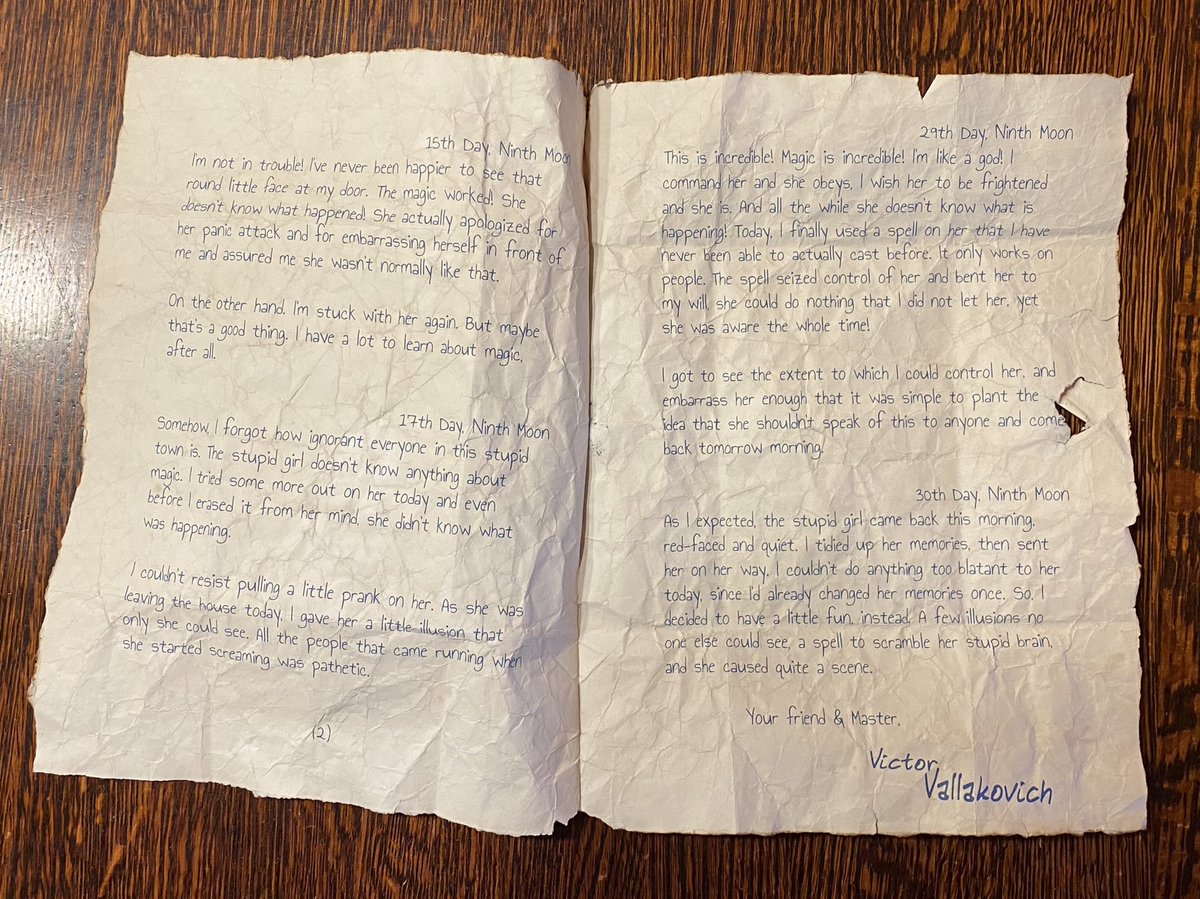 15th Day, Ninth Moon
I'm not in trouble! I've never been happier to see that
round little face at my door. The magic worked! She
doesn't know what happened! She actually apologized for
her panic attack and for embarrassing herself in front of
me and assured me she wasn't normally like that.
On the other hand. I'm stuck with her again. But maybe
that's a good thing. I have a lot to learn about magic,
after all.
17th Day, Ninth Moon
Somehow, I forgot how ignorant everyone in this stupid
town is. The stupid girl doesn't know anything about
magic. I tried some more out on her today and even
before I erased it from her mind, she didn't know what
was happening.
I couldn't resist pulling a little prank on her. As she was
leaving the house today, I gave her a little illusion that
only she could see. All the people that came running when
she started screaming was pathetic.
(2)
29th Day, Ninth Moon
This is incredible! Magic is incredible! I'm like a god! I
command her and she obeys, I wish her to be frightened
and she is. And all the while she doesn't know what is
happening! Today, I finally used a spell on her that I have
never been able to actually cast before. It only works on
people. The spell seized control of her and bent her to
my will, she could do nothing that I did not let her, yet
she was aware the whole time!
I got to see the extent to which I could control her, and
embarrass her enough that it was simple to plant the
idea that she shouldn't speak of this to anyone and come
back tomorrow morning.
30th Day, Ninth Moon
As I expected, the stupid girl came back this morning,
red-faced and quiet. I tidied up her memories, then sent
her on her way. I couldn't do anything too blatant to her
today, since I'd already changed her memories once. So, I
decided to have a little fun instead. A few illusions no
one else could see, a spell to scramble her stupid brain,
and she caused quite a scene.
Your friend & Master,
Victor
Vallakovich